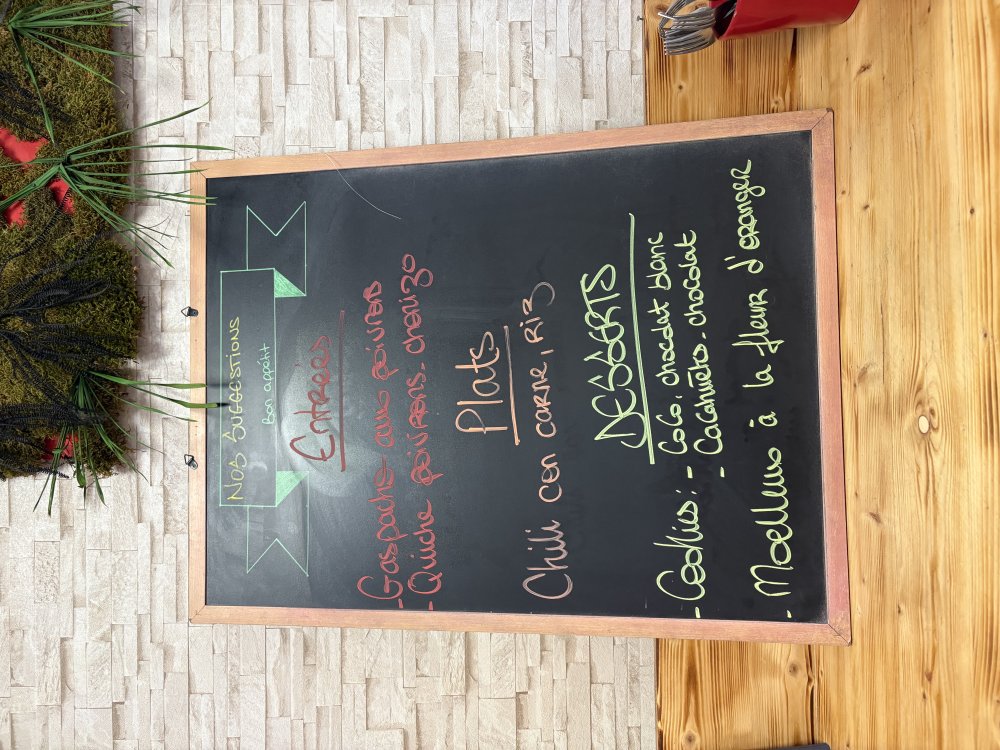 NOS SUGGESTIONS
Bon appétit
Entrées
- Gaspacho aux poivrons
- Quiche poivrons - chorizo
Plats
Chili con carne, riz
DESSERTS
- Cookies : - Coco, chocolat blanc
- Cacahuète - chocolat
- Moelleux à la fleur d'oranger